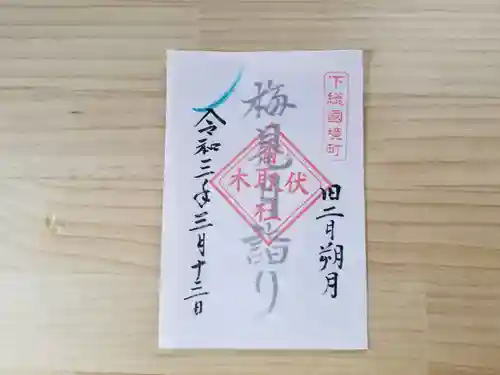 下総國境町
旧二月朔月
梅見月詣り
香取社
伏木
令和三年三月十三日